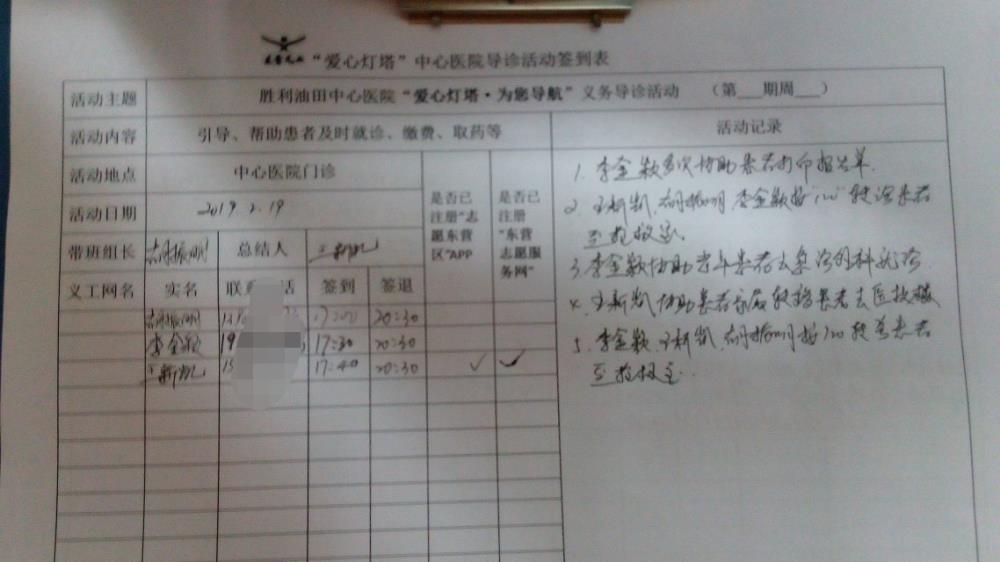 “爱心灯塔”中心医院导诊活动签到表
活动主题 胜利油田中心医院“爱心灯塔·为您导航”义务导诊活动 （第___期周___）
活动内容 引导、帮助患者及时就诊、缴费、取药等 活动记录
活动地点 中心医院门诊
是否已注册“志愿东营区”APP
是否已注册“东营志愿服务网”
活动日期 2019.2.19
带班组长 胡振明 总结人 王新凯
义工网名 实名 签到 签退
胡振明 17:00 20:30
李金颖 19 17:30 20:30
王新凯 15 17:40 20:30 ✓ ✓
1. 李金颖多次协助患者打印报告单.
2. 王新凯、胡振明、李金颖接“120”转诊患者
至抢救室.
3. 李金颖协助老年患者去急诊外科就诊.
4. 王新凯协助患者家属转指患者去医技楼
5. 李金颖、王新凯、胡振明接120转着患者
至抢救室.